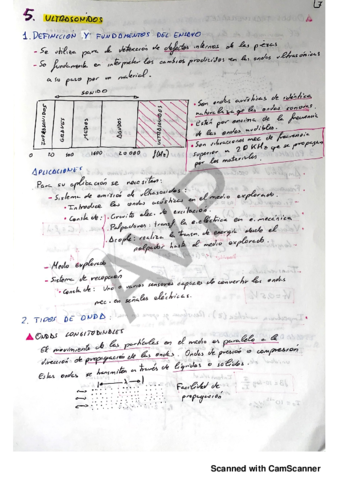 5. ULTRASONIDOS
1. DEFINICIÓN Y FUNDAMENTOS DEL ENSAYO
- Se utiliza para la detección de defectos internos de las piezas
- Se fundamenta en interpretar los cambios producidos en las ondas ultrasónicas
a su paso por un material.
SONIDO
INFRASONIDOS GRAVES MEDIOS AGUDOS ULTRASONIDOS
20 20.000 f(Hz)
- Son ondas acústicas de idéntica
naturaleza que las ondas sonoras.
- Están por encima de la frecuencia
de las ondas audibles.
- Son vibraciones mec. de frecuencia
superior 20 KHz que se propagan
por los materiales
APLICACIONES
Para su aplicación se necesitan:
- Sistema de emisión de ultrasonidos
• Introduce las ondas acústicas en el medio explorado.
• Consta de: Circuito elec. de excitación
Palpadores: transf. e. eléctrica en e. mecánica
Acople: realiza la transm. de energía desde el
palpador hasta el medio explorado.
- Medio explorado
- Sistema de recepción
• Consta de: Uno o varios sensores capaces de convertir las ondas
mec. en señales eléctricas.
2. TIPOS DE ONDA
ONDAS LONGITUDINALES
El movimiento de las partículas en el medio es paralelo a la
dirección de propagación de las ondas. Ondas de presión o compresión
Estas ondas se transmiten a través de líquidos o sólidos.
λ
Facilidad de
propagación
Scanned with CamScanner